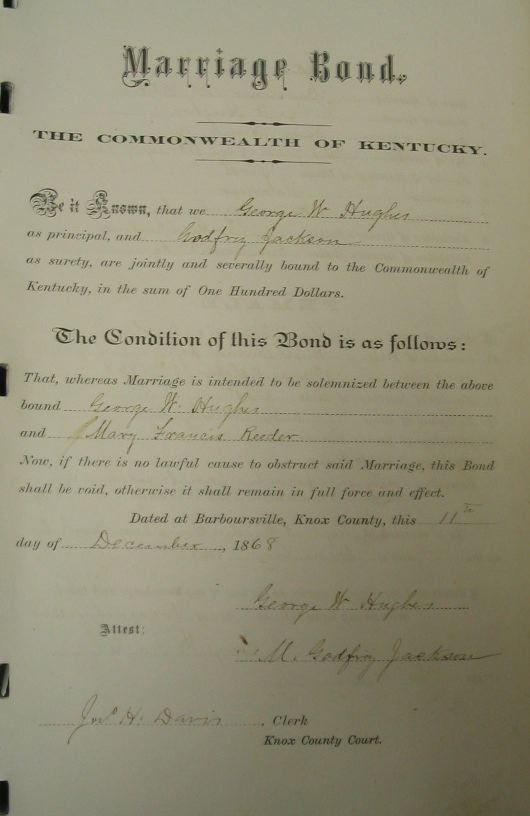 Marriage Bond.
THE COMMONWEALTH OF KENTUCKY.
Be it Known, that we George W Hughes
as principal, and Godfrey Jackson
as surety, are jointly and severally bound to the Commonwealth of
Kentucky, in the sum of One Hundred Dollars.
The Condition of this Bond is as follows:
That, whereas Marriage is intended to be solemnized between the above
bound George W. Hughes
and Mary Francis Reeder
Now, if there is no lawful cause to obstruct said Marriage, this Bond
shall be void, otherwise it shall remain in full force and effect.
Dated at Barboursville, Knox County, this 11th
day of December, 1868
George W Hughes
Attest:
M. Godfrey Jackson
H. Davis, Clerk
Knox County Court.